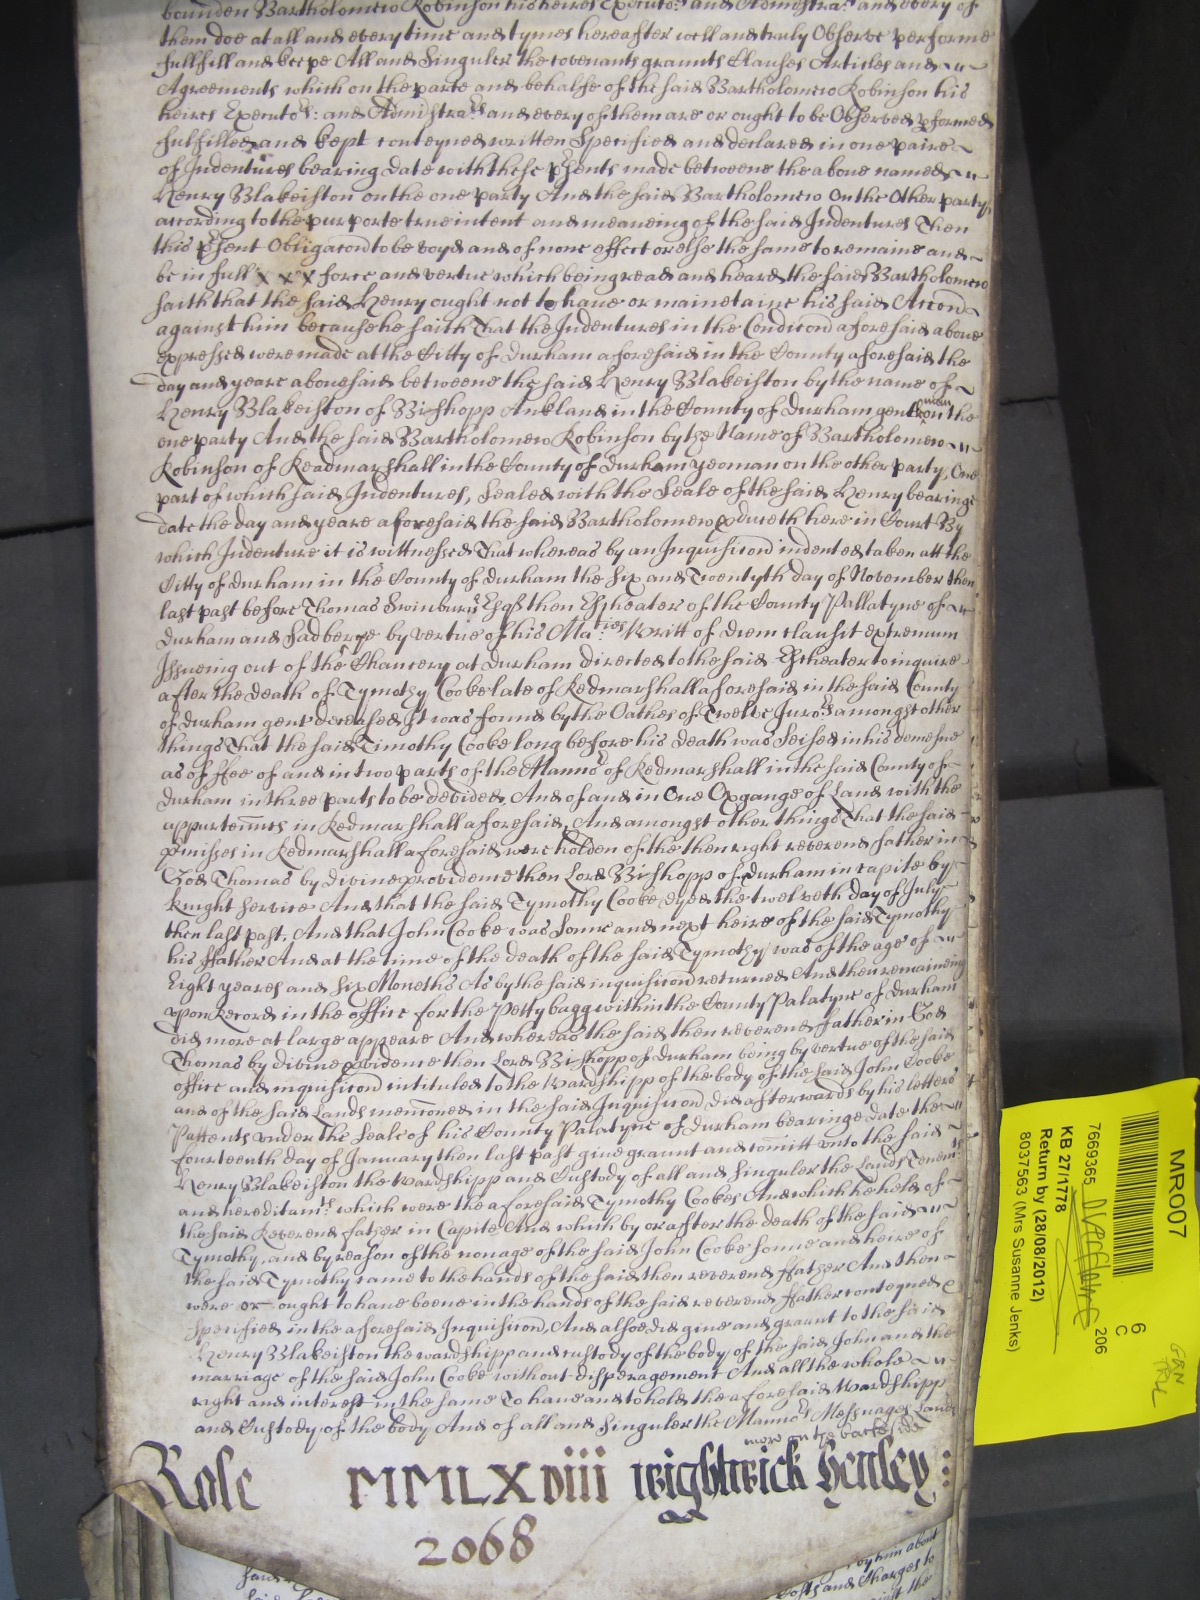 bounden Bartholomew Robinson his heires Executors: and Administrars and every of
them doe at all and every time and tymes hereafter well and truly Observe performe
fullfill and keepe All and Singuler the Covenants graunts Clauses Articles and
Agreements which on the parte and behalfe of the said Bartholomew Robinson his
heires Executors: and Administrars and every of them are or ought to be Observed pformed
fulfilled and kept conteyned written Specified and declared in one paire
of Indentures bearing date with these psents made betweene the above named
Henry Blakeiston on the one party And the said Bartholomew On the Other party
according to the purporte true intent and meaneing of the said Indentures Then
this psent Obligacon to be voyd and of none effect or else the same to remaine and
be in full x x x force and vertue which being read and heard the said Bartholomew
saith that the said Henry ought not to have or mainetaine his said Accon
against him because he saith That the Indentures in the Condicon aforesaid above
expressed were made at the Citty of Durham aforesaid in the County aforesaid the
day and yeare abovesaid betweene the said Henry Blakeiston by the name of
Henry Blakeiston of Bishopp Aukland in the County of Durham gentleman on the
one party And the said Bartholomew Robinson by the Name of Bartholomew
Robinson of Readmarshall in the County of Durham yeoman on the other party, One
part of which said Indentures, Sealed with the Seale of the said Henry bearinge
date the day and yeare aforesaid the said Bartholomew pduceth here in Court By
which Indenture it is wittnessed That whereas by an Inquisicon indented taken att the
Citty of Durham in the County of Durham the Six and Twentyth day of November then
last past before Thomas Swinburne Esqr then Escheator of the County Pallatyne of
Durham and Sadberge by vertue of his Maties Writt of Diem clausit extremum
Issueing out of the Chancery at Durham directed to the said Escheater to inquire
after the death of Tymothy Cooke late of Redmarshall aforesaid in the said County
of Durham gent deceased It was found by the Oathes of Twelve Jurors amongst other
things That the said Timothy Cooke long before his death was Seised in his demesne
as of ffee of and in two parts of the Mannor of Redmarshall in the said County of
Durham in three parts to be devided, And of and in One Oxgange of Land with the
appurtennces in Redmarshall aforesaid, And amongst other things That the said
pmisses in Redmarshall aforesaid were holden of the then right reverend father in
God Thomas by divine providence then Lord Bishopp of Durham in capite by
knight service And that the said Tymothy Cooke dyed the twelveth day of July
then last past, And that John Cooke was Sonne and next heire of the said Tymothy
his ffather And at the time of the death of the said Tymothy was of the age of
Eight yeares and six Moneths As by the said inquisicon returned And then remaineing
upon Record in the office for the Pettybagg within the County Palatyne of Durham
did more at large appeare And whereas the said then reverend ffather in God
Thomas by divine pvidence then Lord Bishopp of Durham being by vertue of the said
office and inquisicon intituled to the Wardshipp of the body of the said John Cooke
and of the said Lands menconed in the said Inquisicon, Did afterwards by his letters
Pattents under the Seale of his County Palatyne of Durham bearinge date the
fourteenth day of January then last past give graunt and comitt unto the said
Henry Blakeiston the Wardshipp and Custody of all and singuler the Lands Tenemts
and hereditamts which were the aforesaid Tymothy Cookes And which he held of
the said Reverend father in Capite And which by or after the death of the said
Tymothy, and by reason of the nonage of the said John Cooke Sonne and heire of
the said Tymothy came to the hands of the said then reverend ffather And then
were or ought to have beene in the hands of the said reverend ffather conteyned
Specified in the aforesaid Inquisicon, And alsoe did give and graunt to the said
Henry Blakeiston the wardshipp and custody of the body of the said John and the
marriage of the said John Cooke without disperagement And all the whole
right and interest in the same To have and to hold the aforesaid Wardshipp
and Custody of the body And of all and Singuler the Mannors Messuages Lands
more on the backside
Rolc MMLXviii Wightwick Henley:
2068
by him about
Costs and Charges to
the
MR007
6
C
206
7669365
KB 27/1778
Return by (28/08/2012)
8037563 (Mrs Susanne Jenks)